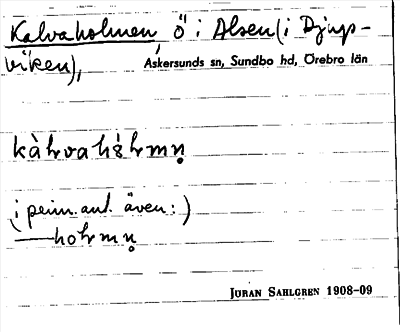 Kalvaholmen, ö i Alsen (i Djup-
viken),
Askersunds sn, Sundbo hd, Örebro län
kàhvahòhmṇ
(i peim. ant. även:)
—hohmṇ
JURAN SAHLGREN 1908-09